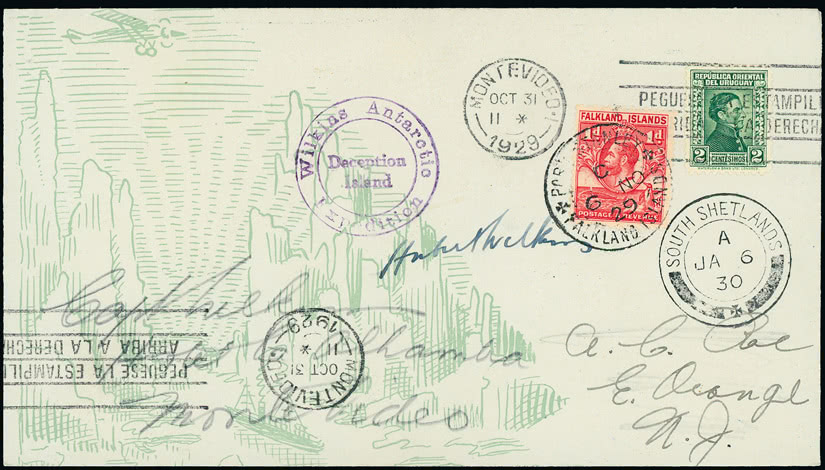 MONTEVIDEO
OCT 31
11 *
1929
PEGUESE LA ESTAMPILL
ARRIBA A LA DERECHA
REPÚBLICA ORIENTAL
DEL URUGUAY
2 CENTÉSIMOS 2
FALKLAND ISLANDS
1d 1d
POSTAGE & REVENUE
PORT STANLEY
6 NO 29
FALKLAND ISLANDS
Wilkins Antarctic
Deception
Island
Hubert Wilkins
SOUTH SHETLANDS
A
JA 6
30
Capt
Hotel Alhambra
Montevideo
A. C. Coe
E. Orange
N. J.
MONTEVIDEO
OCT 31
11 *
1929
PEGUESE LA ESTAMPILL
ARRIBA A LA DERECHA